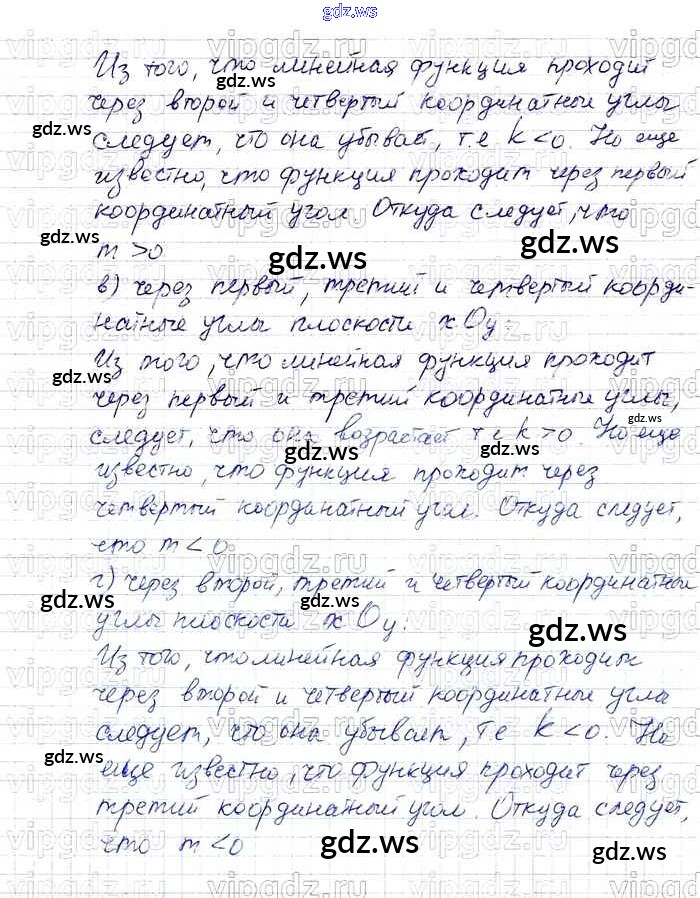 gdz.ws
Из того, что линейная функция проходит
через второй и четвертый координатные углы
следует, что она убывает, т.е k < 0. Но еще
известно, что функция проходит через первый
координатный угол. Откуда следует, что
m > 0
в) через первый, третий и четвертый коорди-
натные углы плоскости xOy:
Из того, что линейная функция проходит
через первый и третий координатные углы,
следует, что она возрастает т е k > 0. Но еще
известно, что функция проходит через
четвертый координатный угол. Откуда следует,
что m < 0
г) через второй, третий и четвертый координатные
углы плоскости xOy:
Из того, что линейная функция проходит
через второй и четвертый координатные угла
следует, что она убывает, т е k < 0. Но
еще известно, что функция проходит через
третий координатный угол. Откуда следует,
что m < 0